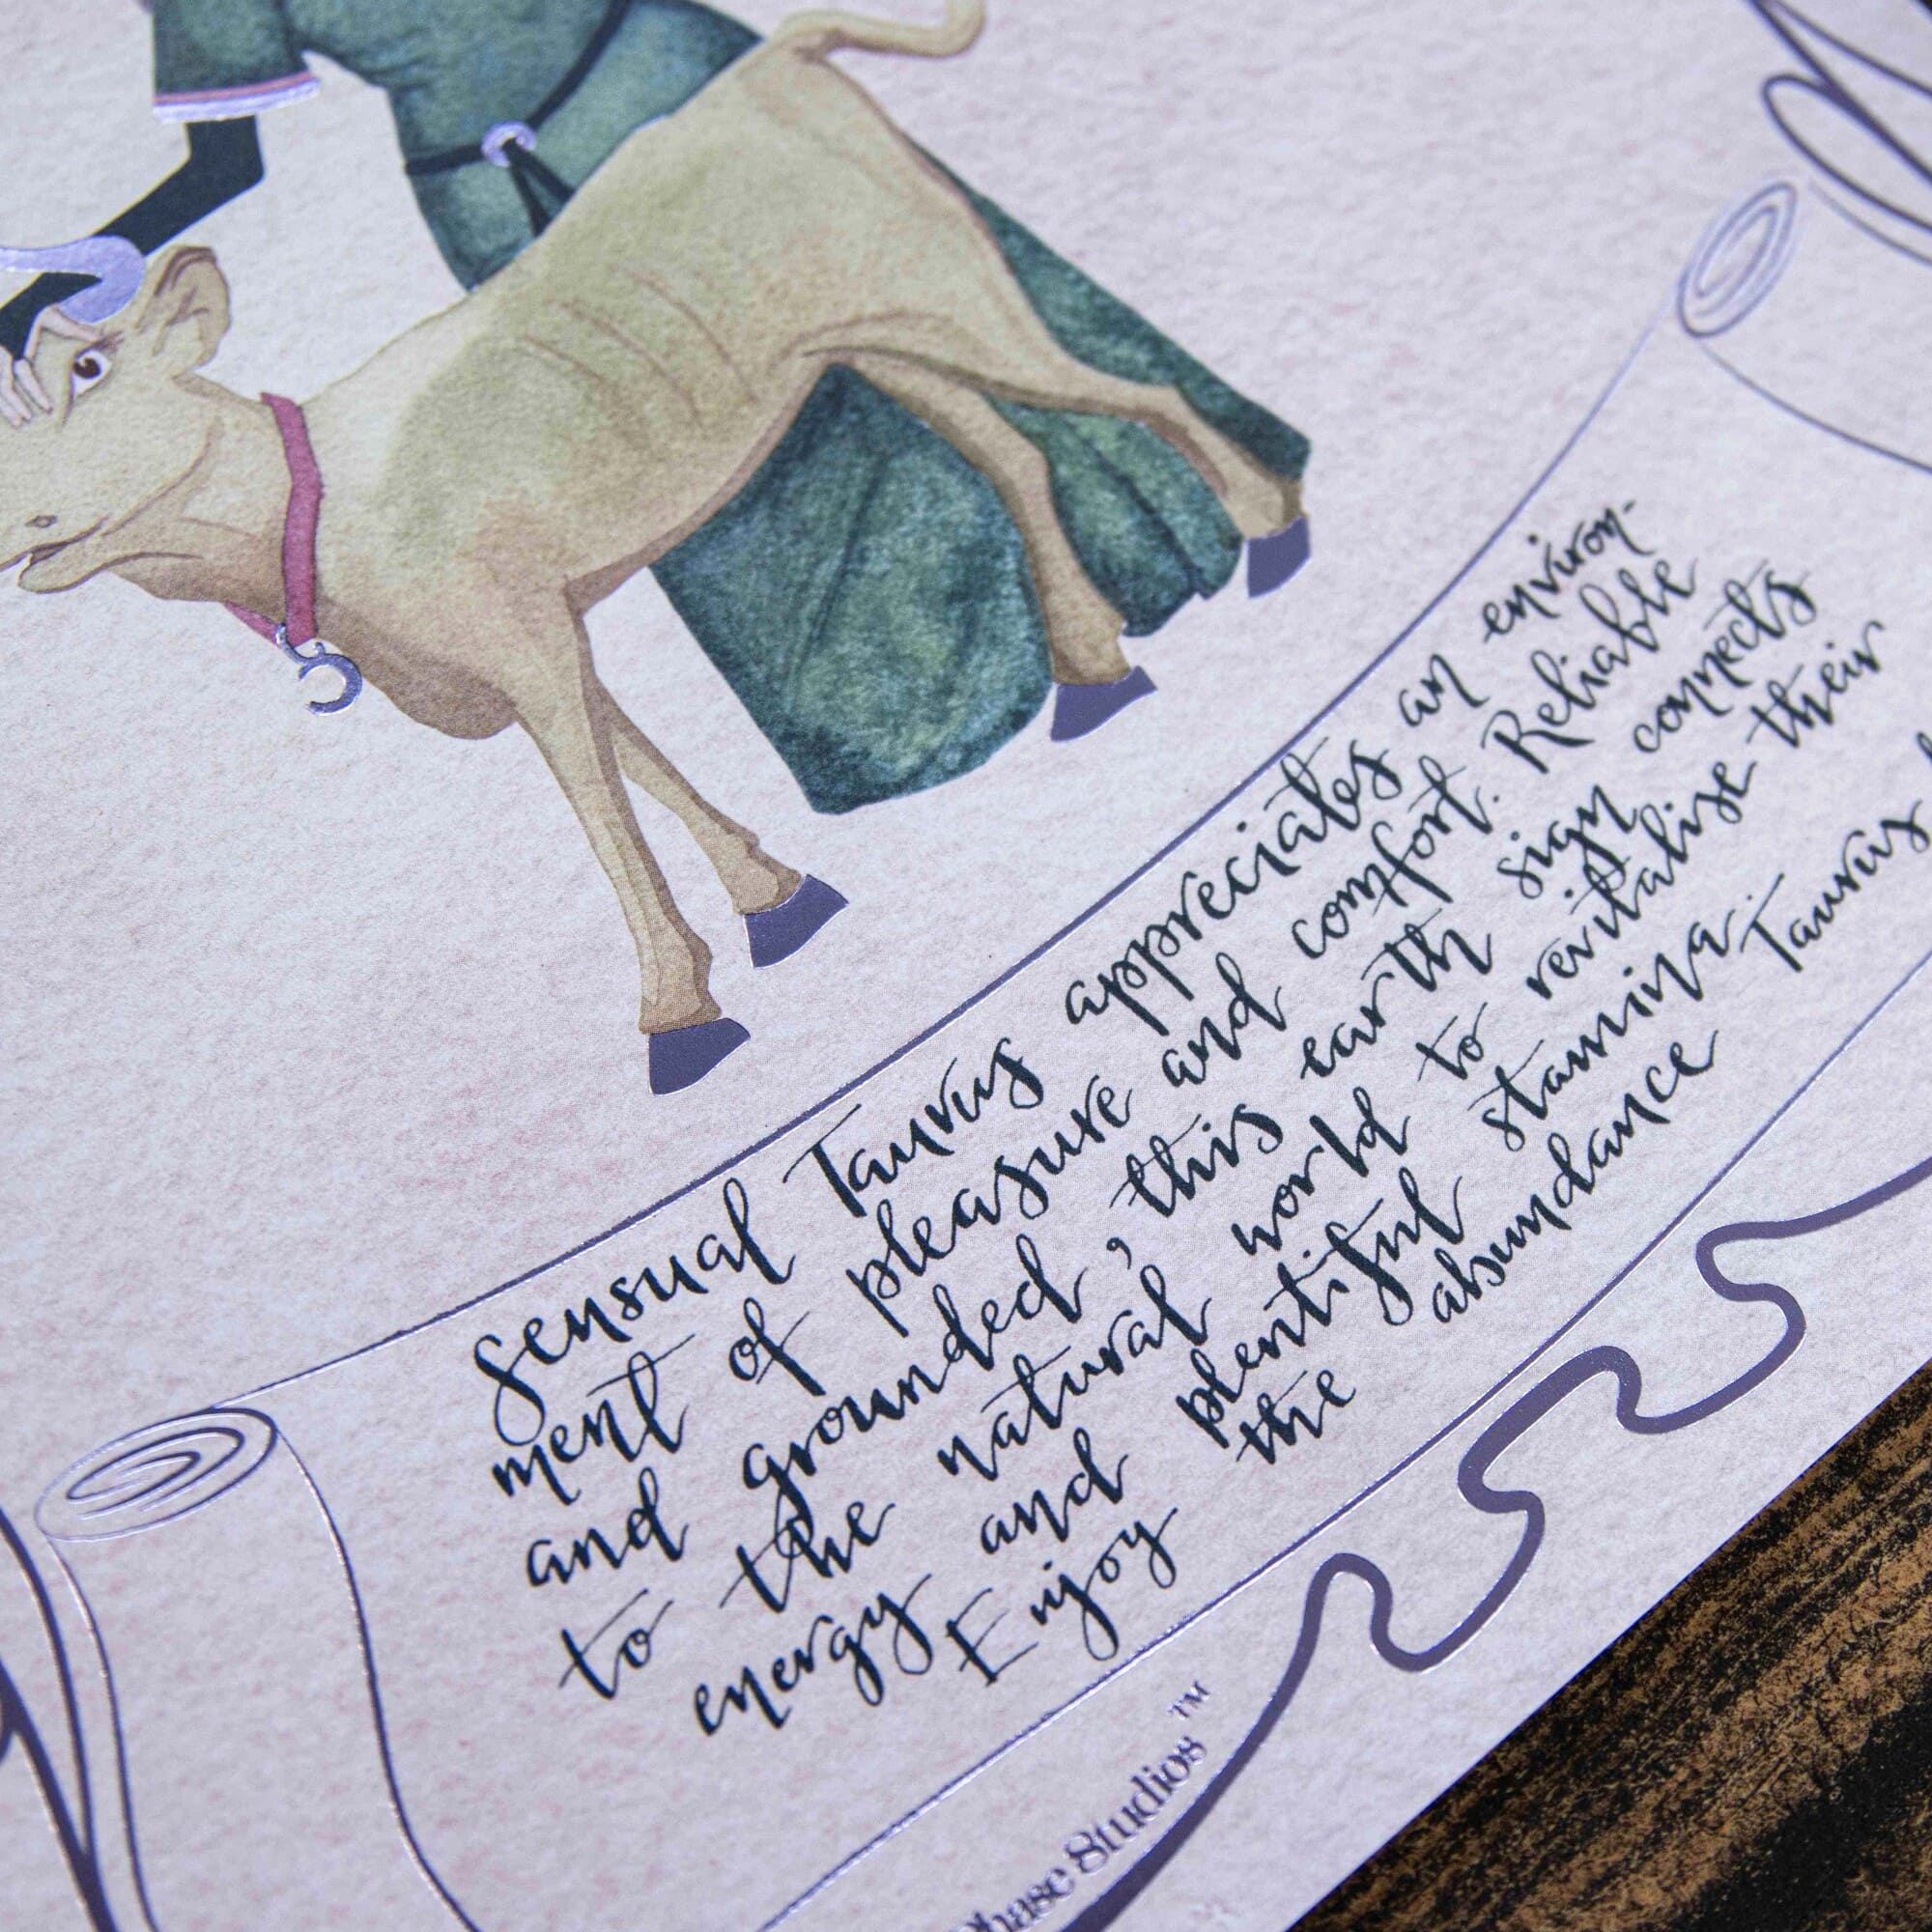 sensual Taurus appreciates an environ-
ment of pleasure and comfort. Reliable
and grounded, this earth sign connects
to the natural world to revitalise their
energy and plentiful stamina.
Enjoy the absundance Taurus
Studios™